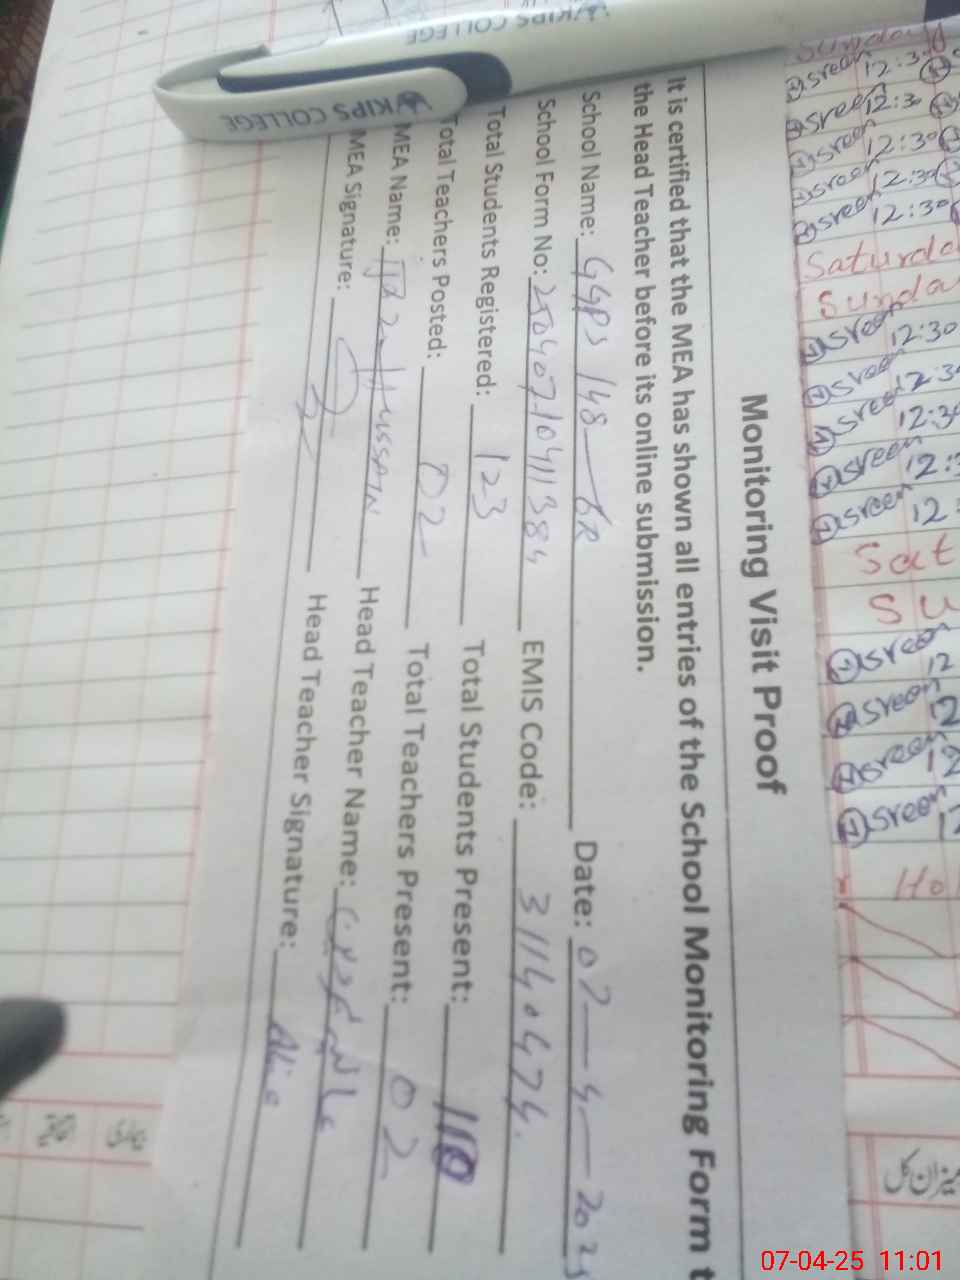 Monitoring Visit Proof
It is certified that the MEA has shown all entries of the School Monitoring Form t
the Head Teacher before its online submission.
School Name: GGPS 148—6R Date: 07—4—2025
School Form No: EMIS Code: 31140474.
Total Students Registered: 123 Total Students Present: 110
Total Teachers Posted: 02 Total Teachers Present: 02
MEA Name: Ijaz Hussain Head Teacher Name:
MEA Signature: Head Teacher Signature:
KIPS COLLEGE
KIPS COLLEGE
Sunday
Asreen 12:30
Asreen 12:30
Asreen 12:30
Asreen 12:30
Asreen 12:30
Saturda
Sunday
Asreen 12:30
Asreen 12:30
Asreen 12:30
Asreen 12:
Asreen 12:
Sat
Su
Asreen 12
Asreen 12
Asreen 12
Asreen 12
Hol
میزان کل
07-04-25 11:01